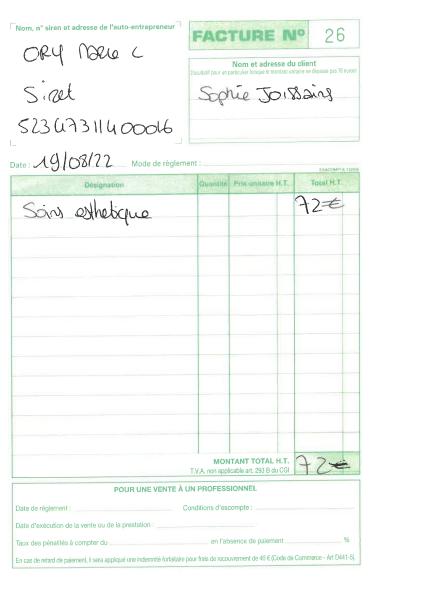 Nom, n° siren et adresse de l'auto-entrepreneur
ORY Marie C
Siret
52347311400016
FACTURE N° 26
Nom et adresse du client
Sophie Joissains
Date : 19/08/22 Mode de règlement :
Désignation Quantité Prix unitaire H.T. Total H.T.
Soins esthetique 72€
MONTANT TOTAL H.T. 72€
T.V.A. non applicable art. 293 B du CGI
POUR UNE VENTE À UN PROFESSIONNEL
Date de règlement : Conditions d'escompte :
Date d'exécution de la vente ou de la prestation :
Taux des pénalités à compter du en l'absence de paiement %
En cas de retard de paiement, il sera appliqué une indemnité forfaitaire pour frais de recouvrement de 40 € (Code de Commerce - Art D441-5).